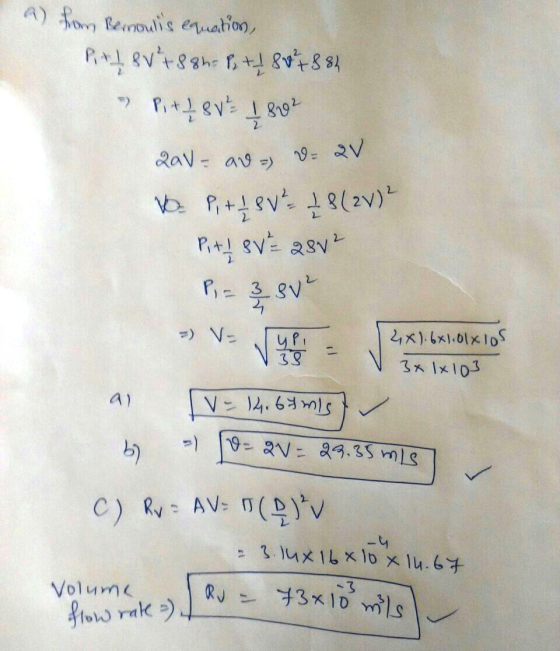 a) from Bernoulis equation,
P₁+½ ρV²+ρgh= P₂+½ ρv²+ρgh
⇒ P₁+½ ρV²= ½ ρv²
2aV= av ⇒ v= 2V
P₁+½ ρV²= ½ ρ(2V)²
P₁+½ ρV²= 2ρV²
P₁= 3/4 ρV²
⇒ V= √(4P₁/3ρ) = √(4×1.6×1.01×10⁵/3×1×10³)
a) V= 14.67m/s ✓
b) ⇒ v= 2V= 29.35 m/s ✓
C) Rv= AV= π(D/2)²V
= 3.14×16×10⁻⁴×14.67
Volume
flow rate ⇒ Rv = 73×10⁻³ m³/s ✓